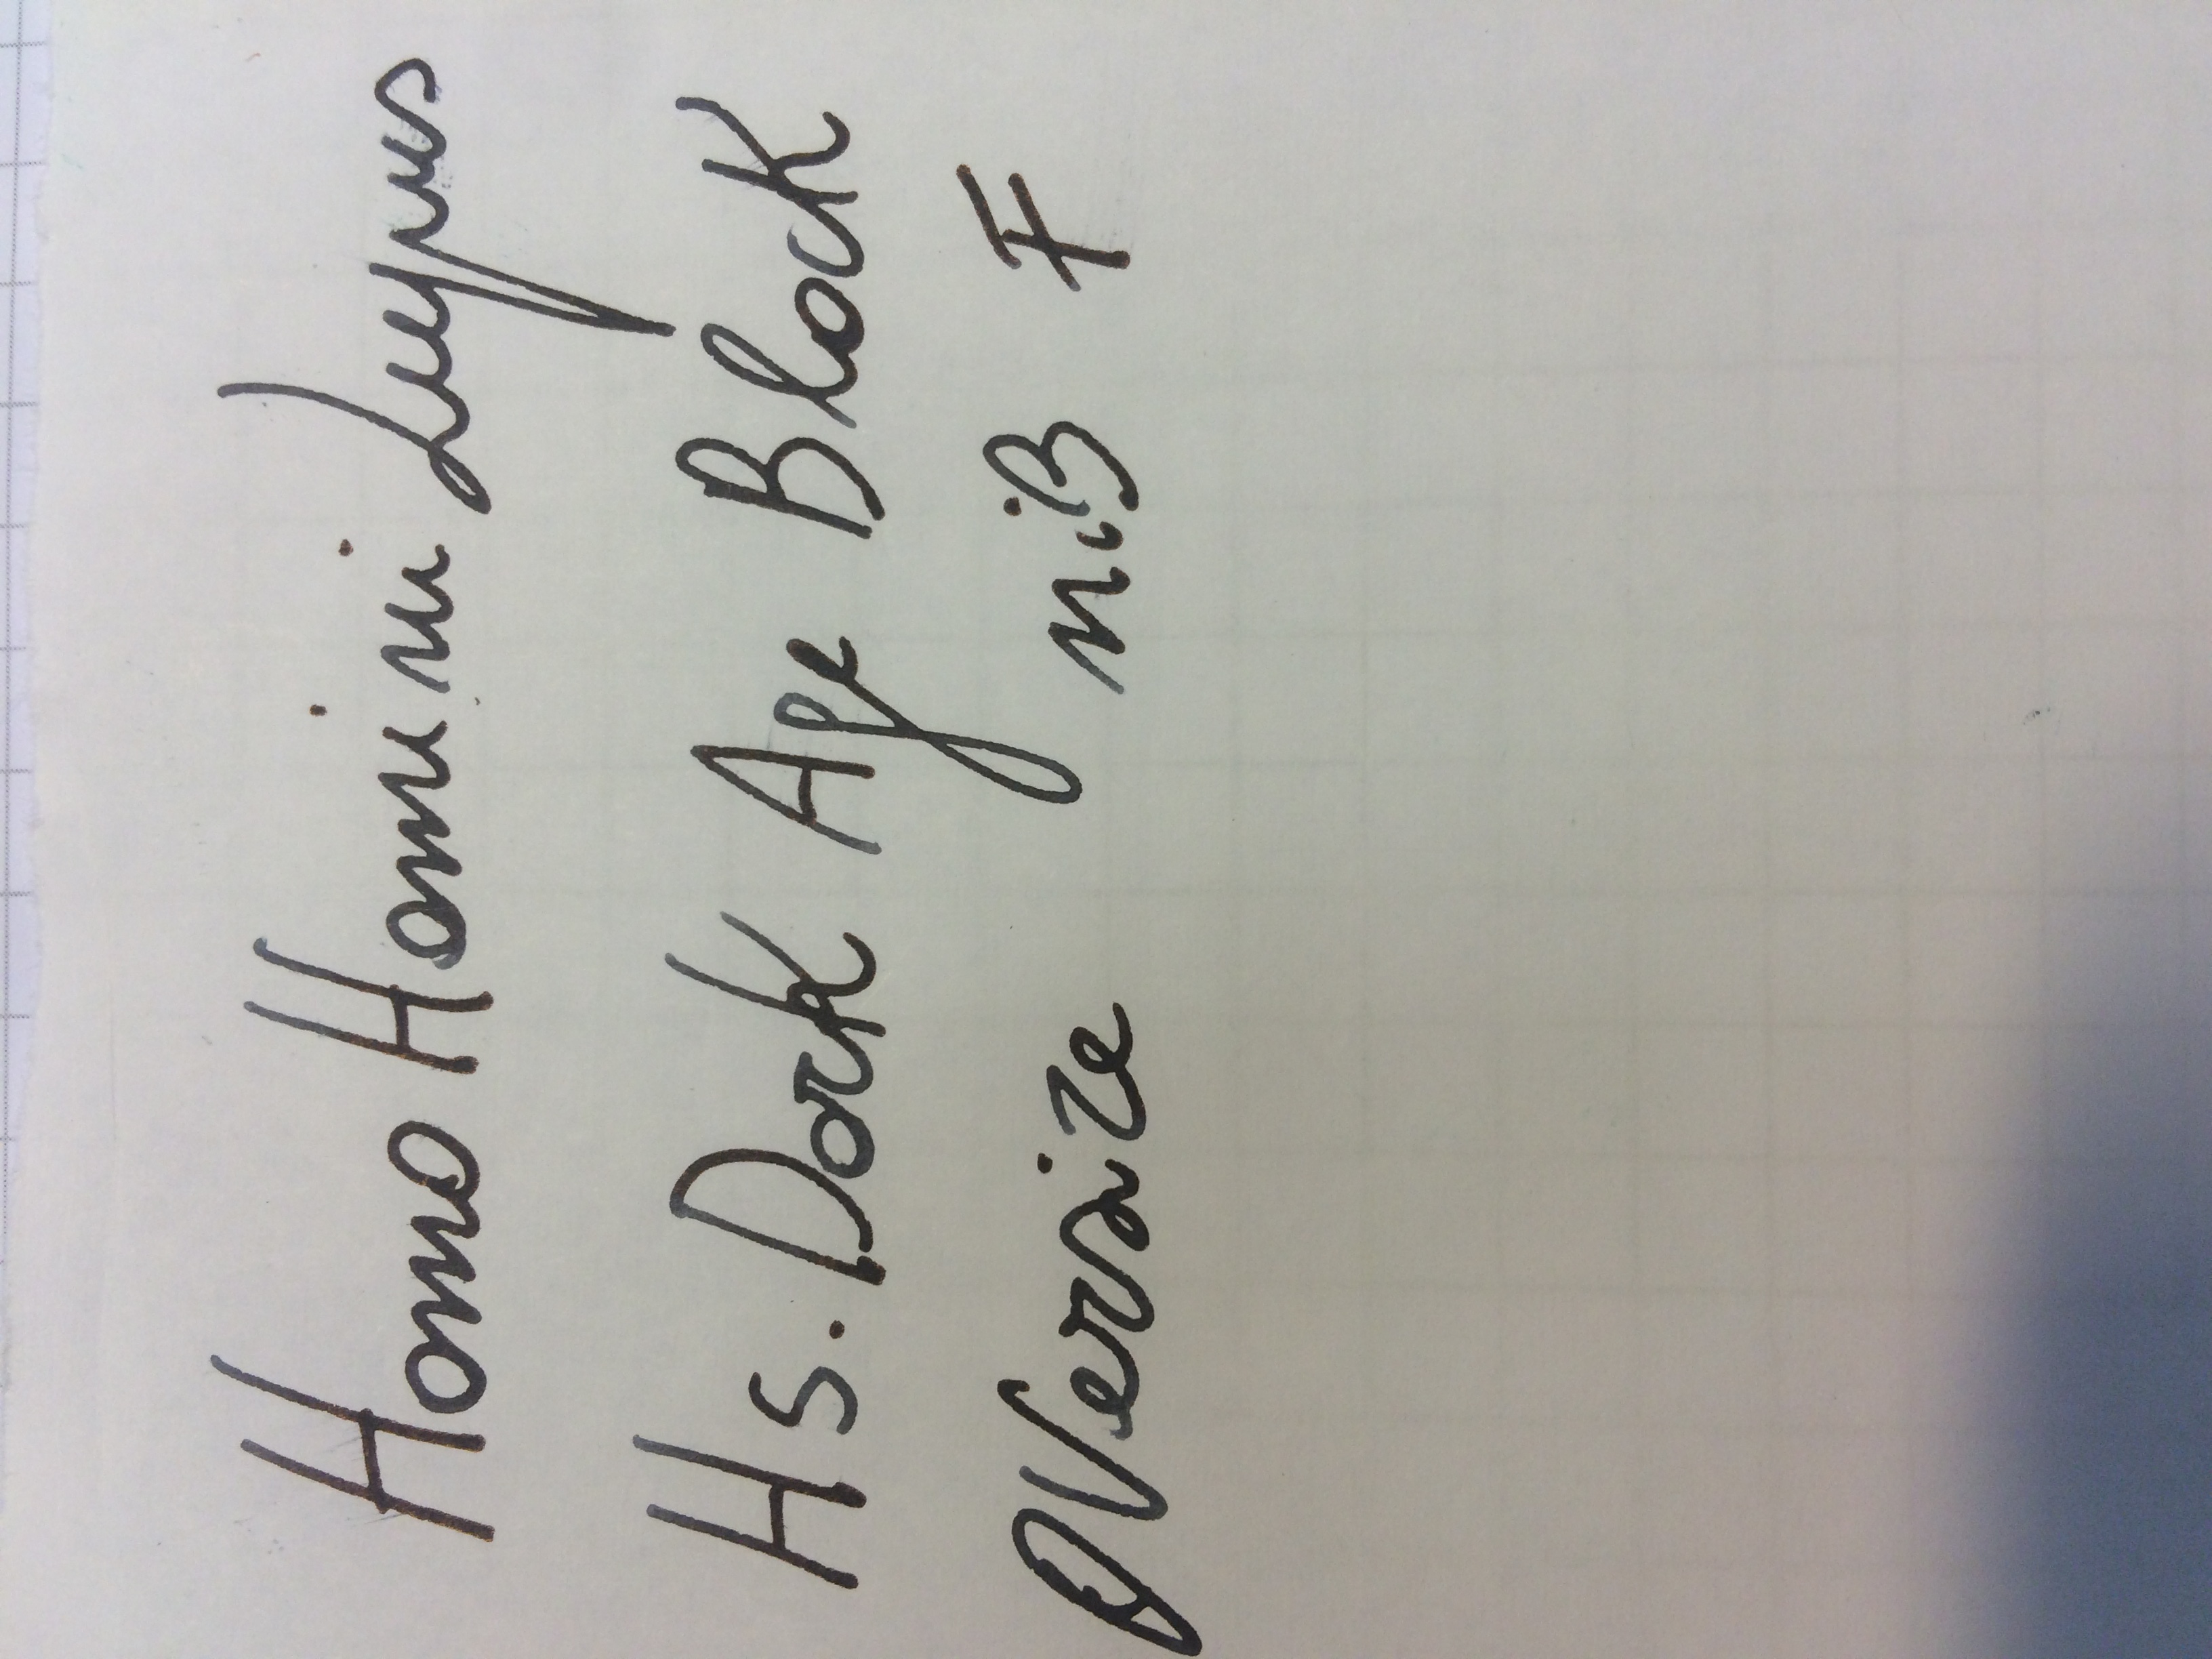 Homo Homini Lupus
Hs. Dark Age Black
Oversize nib F